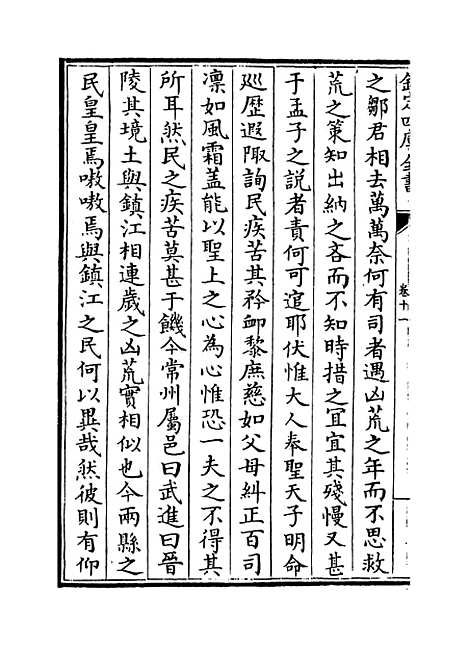 欽定四庫全書
卷十一
之鄒君相去萬萬奈何有司者遇凶荒之年而不思救
荒之策知出納之吝而不知時措之冝宜其殘慢又甚
于孟子之説者責何可逭耶伏惟大人奉聖天子明命
廵歴遐陬詢民疾苦其矜䘏黎庶慈如父母糾正百司
凛如風霜蓋能以聖上之心為心惟恐一夫之不得其
所耳然民之疾苦莫甚于饑今常州屬邑曰武進曰晉
陵其境土與鎮江相連歲之凶荒實相似也今兩縣之
民皇皇焉嗷嗷焉與鎮江之民何以異哉然彼則有仰